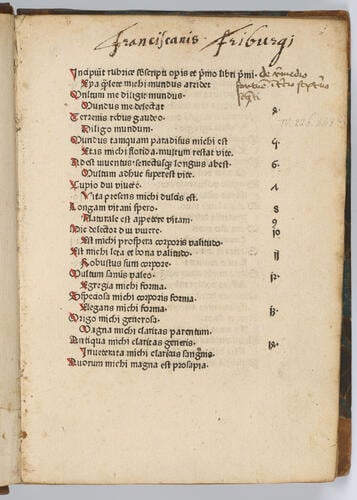 Franciscanis Friburgi
Incipiūt rubrice sēscripti opis et pͥmo libri pͥmi.
Epa q̄lete michi mundus arridet
Multum me diligit mundus.
Mundus me delectat
Terrenis rebus gaudeo. 2.
Diligo mundum.
Mundus tamquam paradisus michi est 4
Etas michi florida. multum restat vite.
Adest iuuentus. senectusq; longius abest. 6
Multum adhuc superest vite.
Cupio diu viuere.
Vita presens michi dulcis est.
Longam vitam spero. 8
Naturale est appetere vitam. 9
Me delectat diu viuere. 10
Est michi prospera corporis valitudo.
Est michi leta et bona valitudo. 11
Robustus sum corpore.
Multum sanus valeo. 12.
Egregia michi forma.
Speciosa michi corporis forma.
Elegans michi forma. 13.
Origo michi generosa.
Magna michi claritas parentum.
Antiqua michi claritas generis. 14.
Inueterata michi claritas sanguinis.
Auorum michi magna est prosapia.